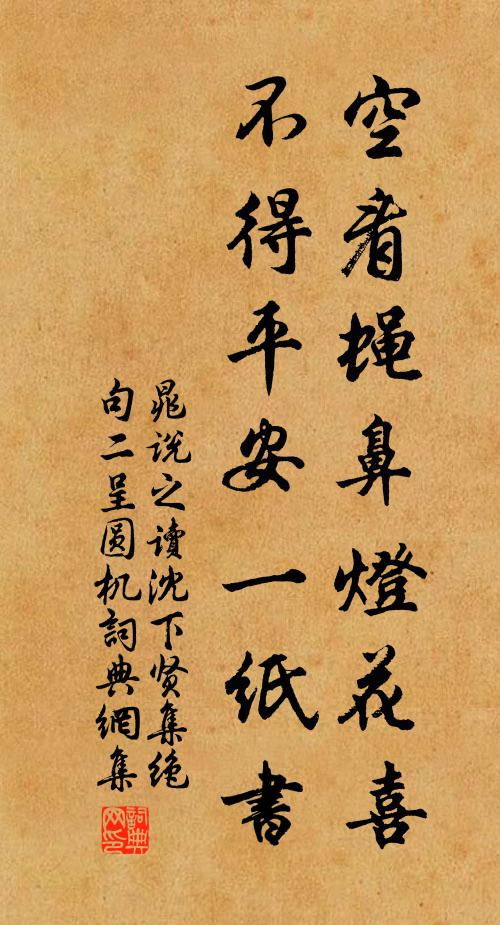 空看蝇鼻燈花喜
不得平安一纸書
晁説之讀沈下贤集绝
句二呈圆机詞典網集
詞典网印